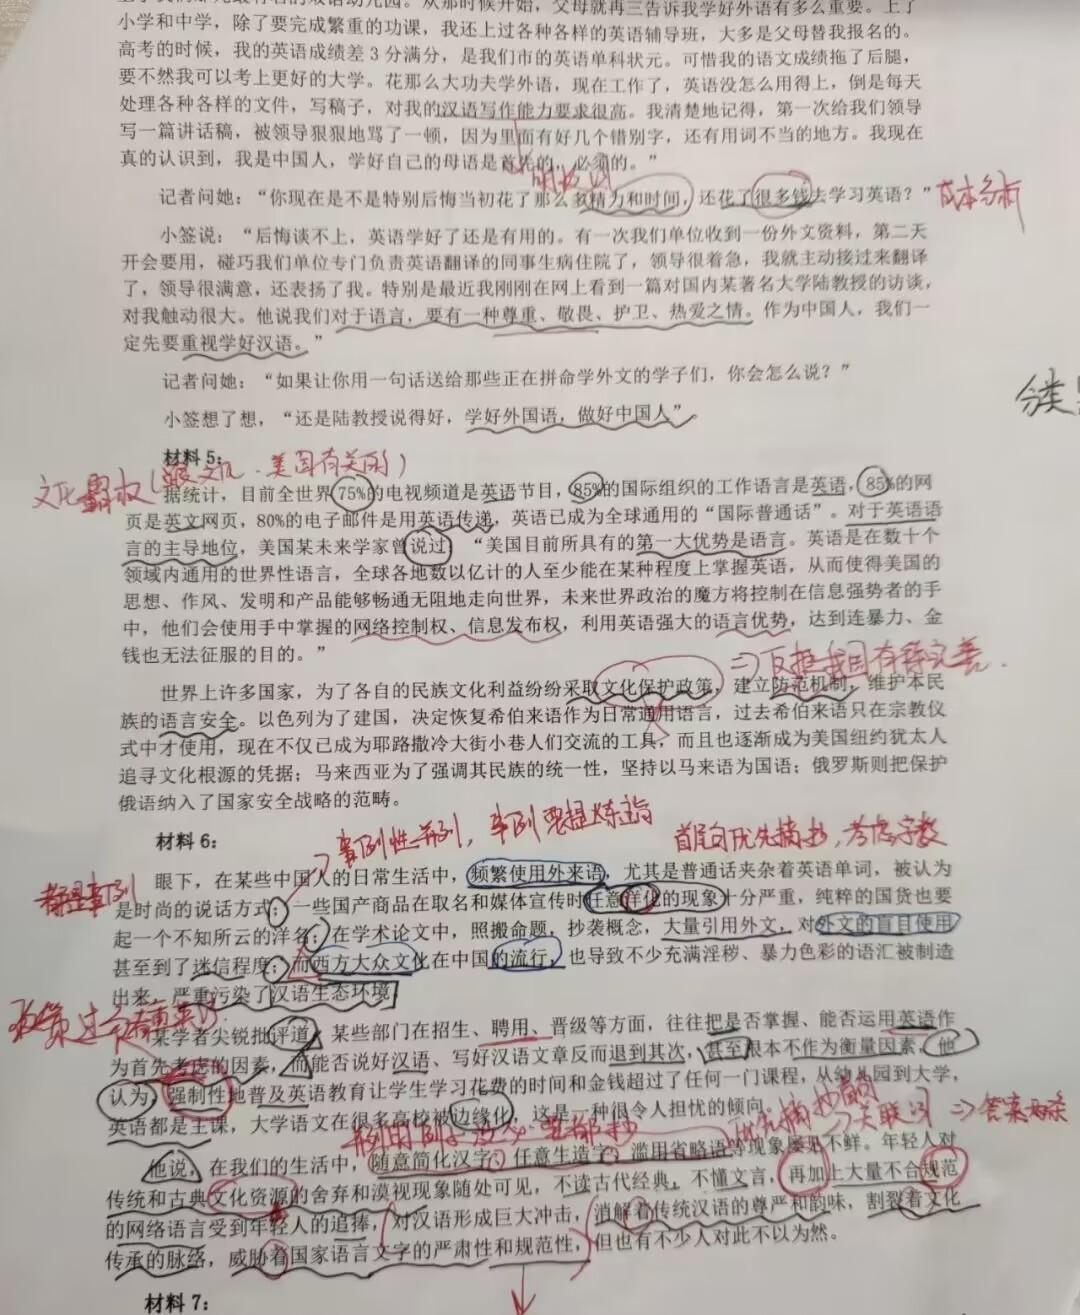 小学和中学，除了要完成繁重的功课，我还上过各种各样的英语辅导班，大多是父母替我报名的。
高考的时候，我的英语成绩差3分满分，是我们市的英语单科状元。可惜我的语文成绩拖了后腿，
要不然我可以考上更好的大学。花那么大功夫学外语，现在工作了，英语没怎么用得上，倒是每天
处理各种各样的文件，写稿子，对我的汉语写作能力要求很高。我清楚地记得，第一次给我们领导
写一篇讲话稿，被领导狠狠地骂了一顿，因为里面有好几个错别字，还有用词不当的地方。我现在
真的认识到，我是中国人，学好自己的母语是首先的，必须的。”
记者问她：“你现在是不是特别后悔当初花了那么多精力和时间，还花了很多钱去学习英语？”
成本分析
小签说：“后悔谈不上，英语学好了还是有用的。有一次我们单位收到一份外文资料，第二天
开会要用，碰巧我们单位专门负责英语翻译的同事生病住院了，领导很着急，我就主动接过来翻译
了，领导很满意，还表扬了我。特别是最近我刚刚在网上看到一篇对国内某著名大学陆教授的访谈，
对我触动很大。他说我们对于语言，要有一种尊重、敬畏、护卫、热爱之情。作为中国人，我们一
定先要重视学好汉语。”
记者问她：“如果让你用一句话送给那些正在拼命学外文的学子们，你会怎么说？”
分类
小签想了想，“还是陆教授说得好，学好外国语，做好中国人”
材料5：
文化霸权 美国有关的）
据统计，目前全世界75%的电视频道是英语节目，85%的国际组织的工作语言是英语，85%的网
页是英文网页，80%的电子邮件是用英语传递，英语已成为全球通用的“国际普通话”。对于英语语
言的主导地位，美国某未来学家曾说过：“美国目前所具有的第一大优势是语言。英语是在数十个
领域内通用的世界性语言，全球各地数以亿计的人至少能在某种程度上掌握英语，从而使得美国的
思想、作风、发明和产品能够畅通无阻地走向世界，未来世界政治的魔方将控制在信息强势者的手
中，他们会使用手中掌握的网络控制权、信息发布权，利用英语强大的语言优势，达到连暴力、金
钱也无法征服的目的。”
⇒反推我国有待完善.
世界上许多国家，为了各自的民族文化利益纷纷采取文化保护政策，建立防范机制，维护本民
族的语言安全。以色列为了建国，决定恢复希伯来语作为日常通用语言，过去希伯来语只在宗教仪
式中才使用，现在不仅已成为耶路撒冷大街小巷人们交流的工具，而且也逐渐成为美国纽约犹太人
追寻文化根源的凭据；马来西亚为了强调其民族的统一性，坚持以马来语为国语；俄罗斯则把保护
俄语纳入了国家安全战略的范畴。
案例性并列，案例要提炼主旨
首尾句优先摘抄，考虑字数
材料6：
都是案例
眼下，在某些中国人的日常生活中，频繁使用外来语，尤其是普通话夹杂着英语单词，被认为
是时尚的说话方式；一些国产商品在取名和媒体宣传时任意洋化的现象十分严重，纯粹的国货也要
起一个不知所云的洋名；在学术论文中，照搬命题，抄袭概念，大量引用外文，对外文的盲目使用
甚至到了迷信程度；而西方大众文化在中国的流行，也导致不少充满淫秽、暴力色彩的语汇被制造
出来，严重污染了汉语生态环境
某学者尖锐批评道，某些部门在招生、聘用、晋级等方面，往往把是否掌握、能否运用英语作
为首先考虑的因素，而能否说好汉语、写好汉语文章反而退到其次，甚至根本不作为衡量因素，他
认为，强制性地普及英语教育让学生学习花费的时间和金钱超过了任何一门课程，从幼儿园到大学，
英语都是主课，大学语文在很多高校被边缘化，这是一种很令人担忧的倾向。
他说，在我们的生活中，随意简化汉字，任意生造字，滥用省略语等现象屡见不鲜。年轻人对
传统和古典文化资源的舍弃和漠视现象随处可见，不读古代经典，不懂文言，再加上大量不合规范
的网络语言受到年轻人的追捧，对汉语形成巨大冲击，消解着传统汉语的尊严和韵味，割裂着文化
传承的脉络，威胁着国家语言文字的严肃性和规范性，但也有不少人对此不以为然。
材料7：